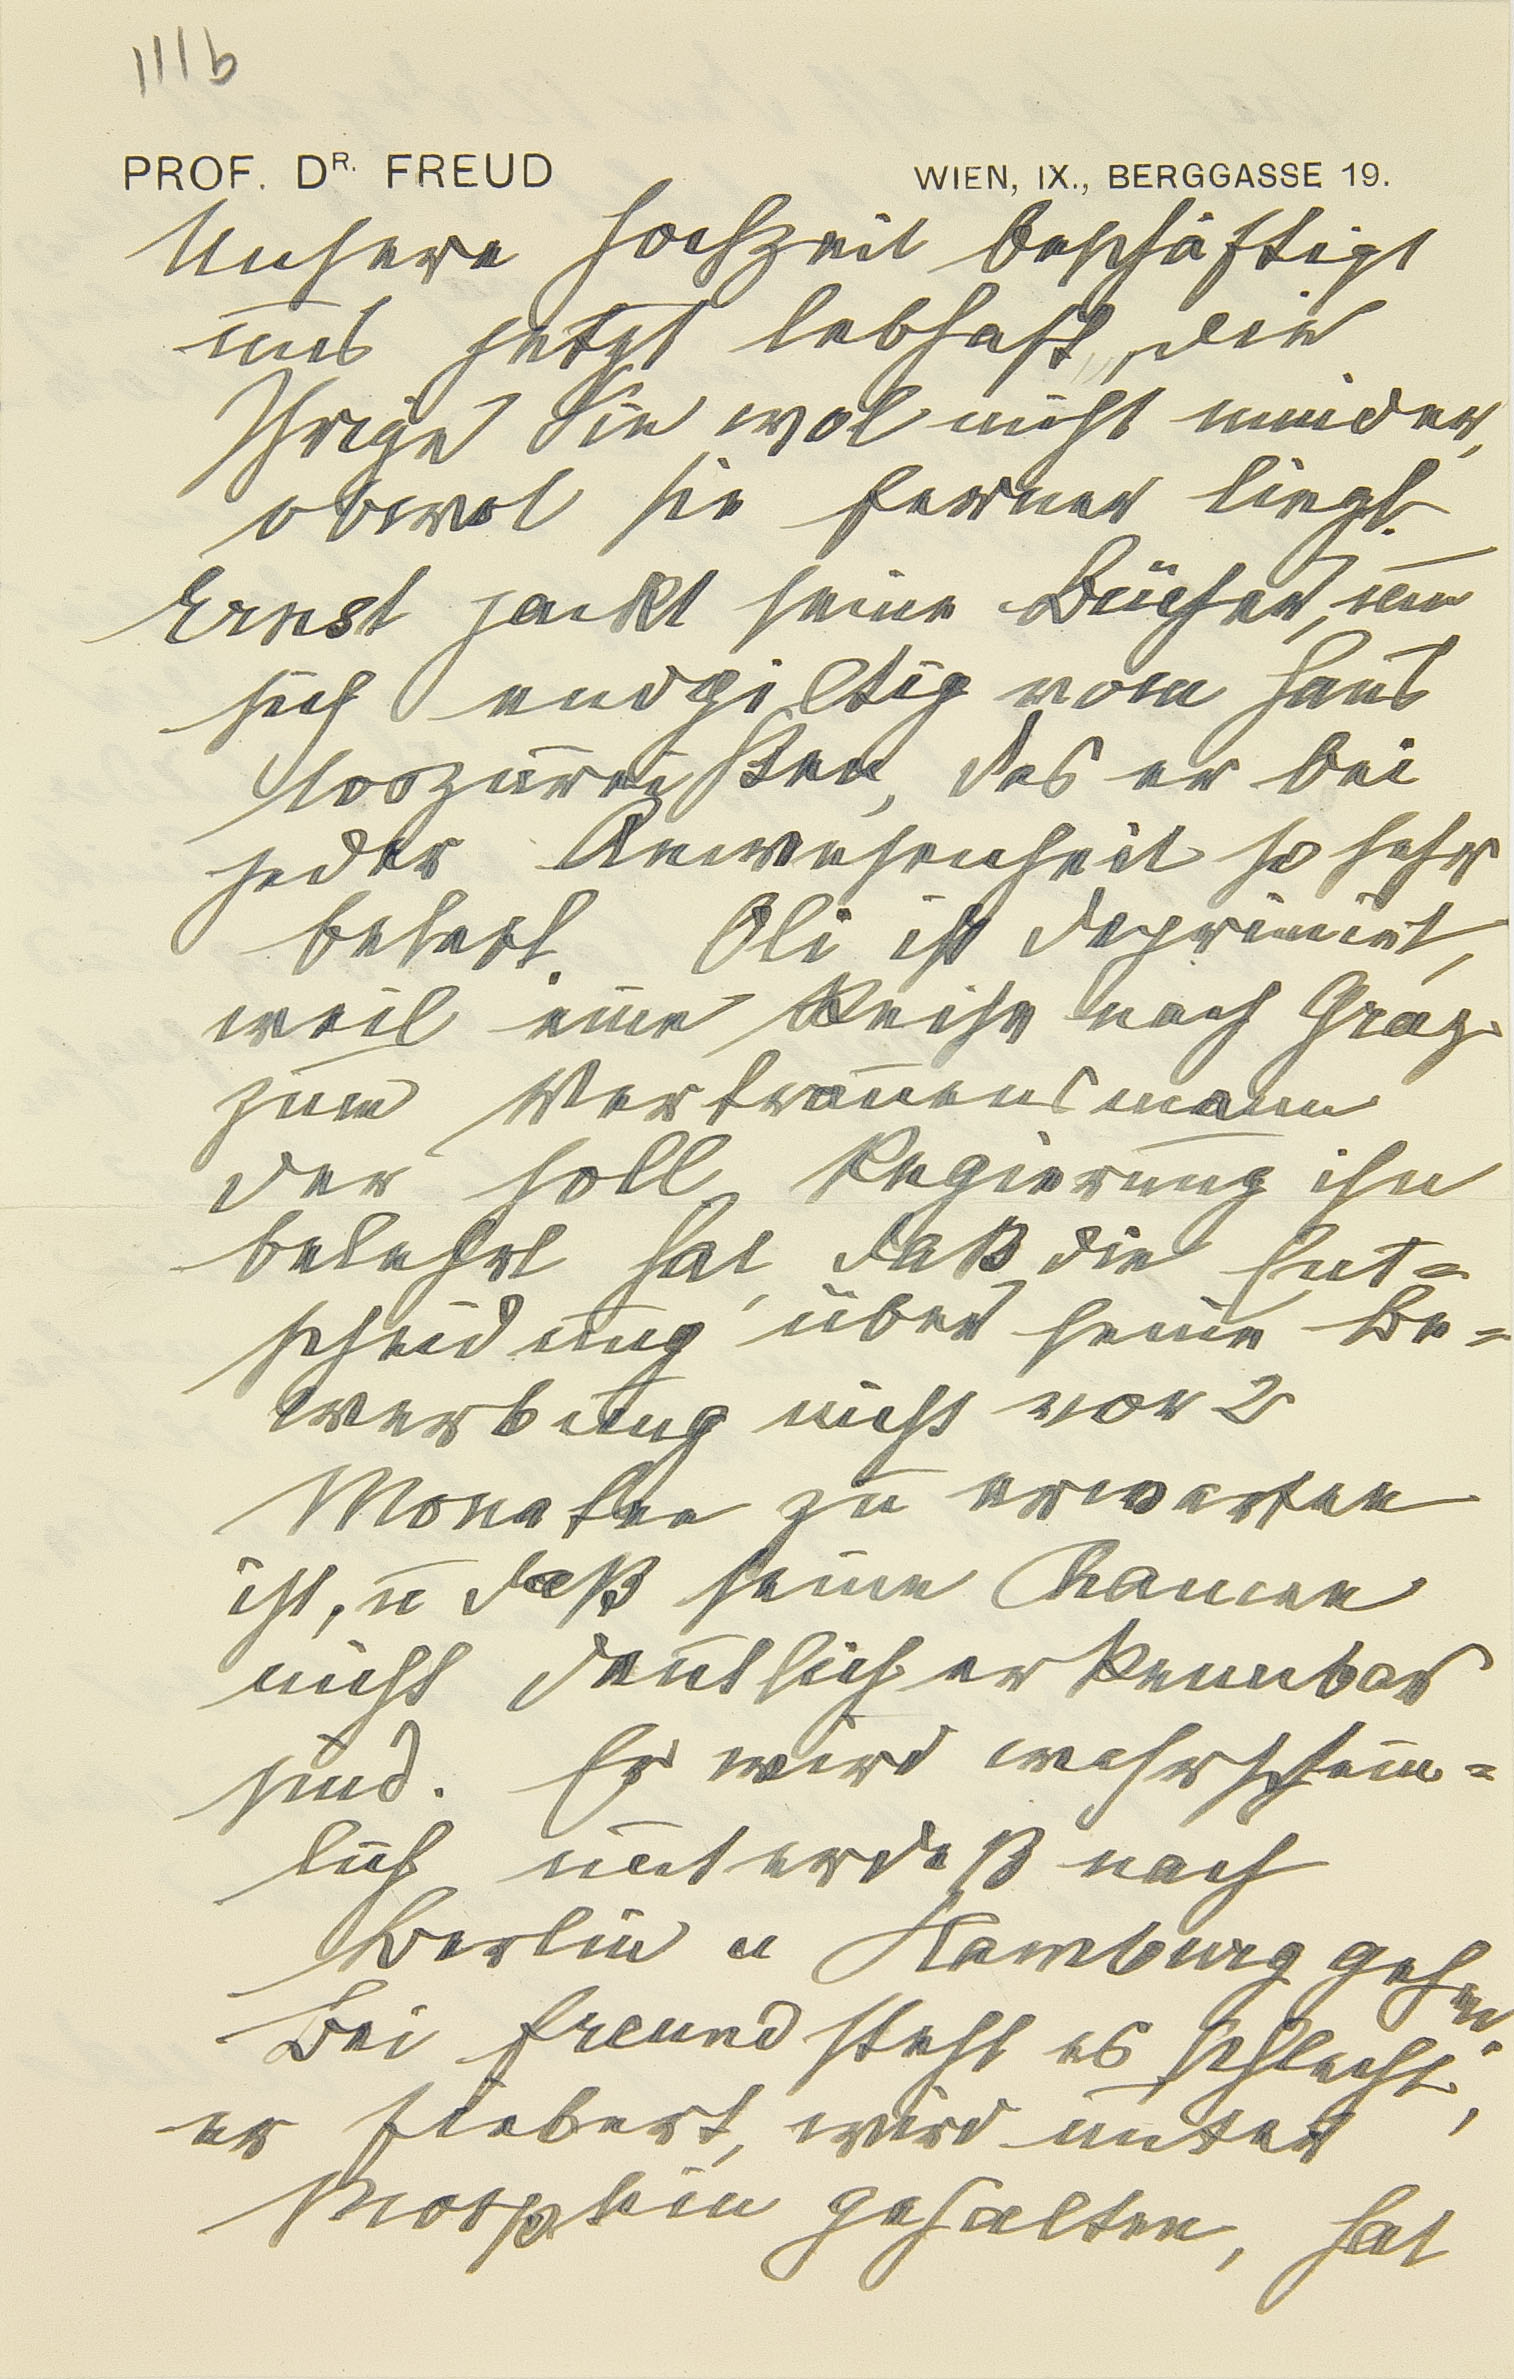 111b
PROF. DR. FREUD WIEN, IX., BERGGASSE 19.
Unsere Hochzeit beschäftigt
uns jetzt lebhaft, die
Ihrige Sie wol nicht minder,
obwol sie ferner liegt.
Ernst packt seine Bücher, um
sich endgiltig vom Haus
loszureißen, das er bei
jeder Anwesenheit so sehr
belebt. Oli ist deprimirt,
weil eine Reise nach Graz
zum Vertrauensmann
der holl. Regierung ihn
belehrt hat, daß die Ent=
scheidung über seine Be=
werbung nicht vor 2
Monaten zu erwarten
ist, u daß seine Chancen
nicht deutlich erkennbar
sind. Er wird wahrschein=
lich unterdeß nach
Berlin u Hamburg gehen.
Bei Freund steht es schlecht,
er fiebert, wird unter
Morphin gehalten, hat